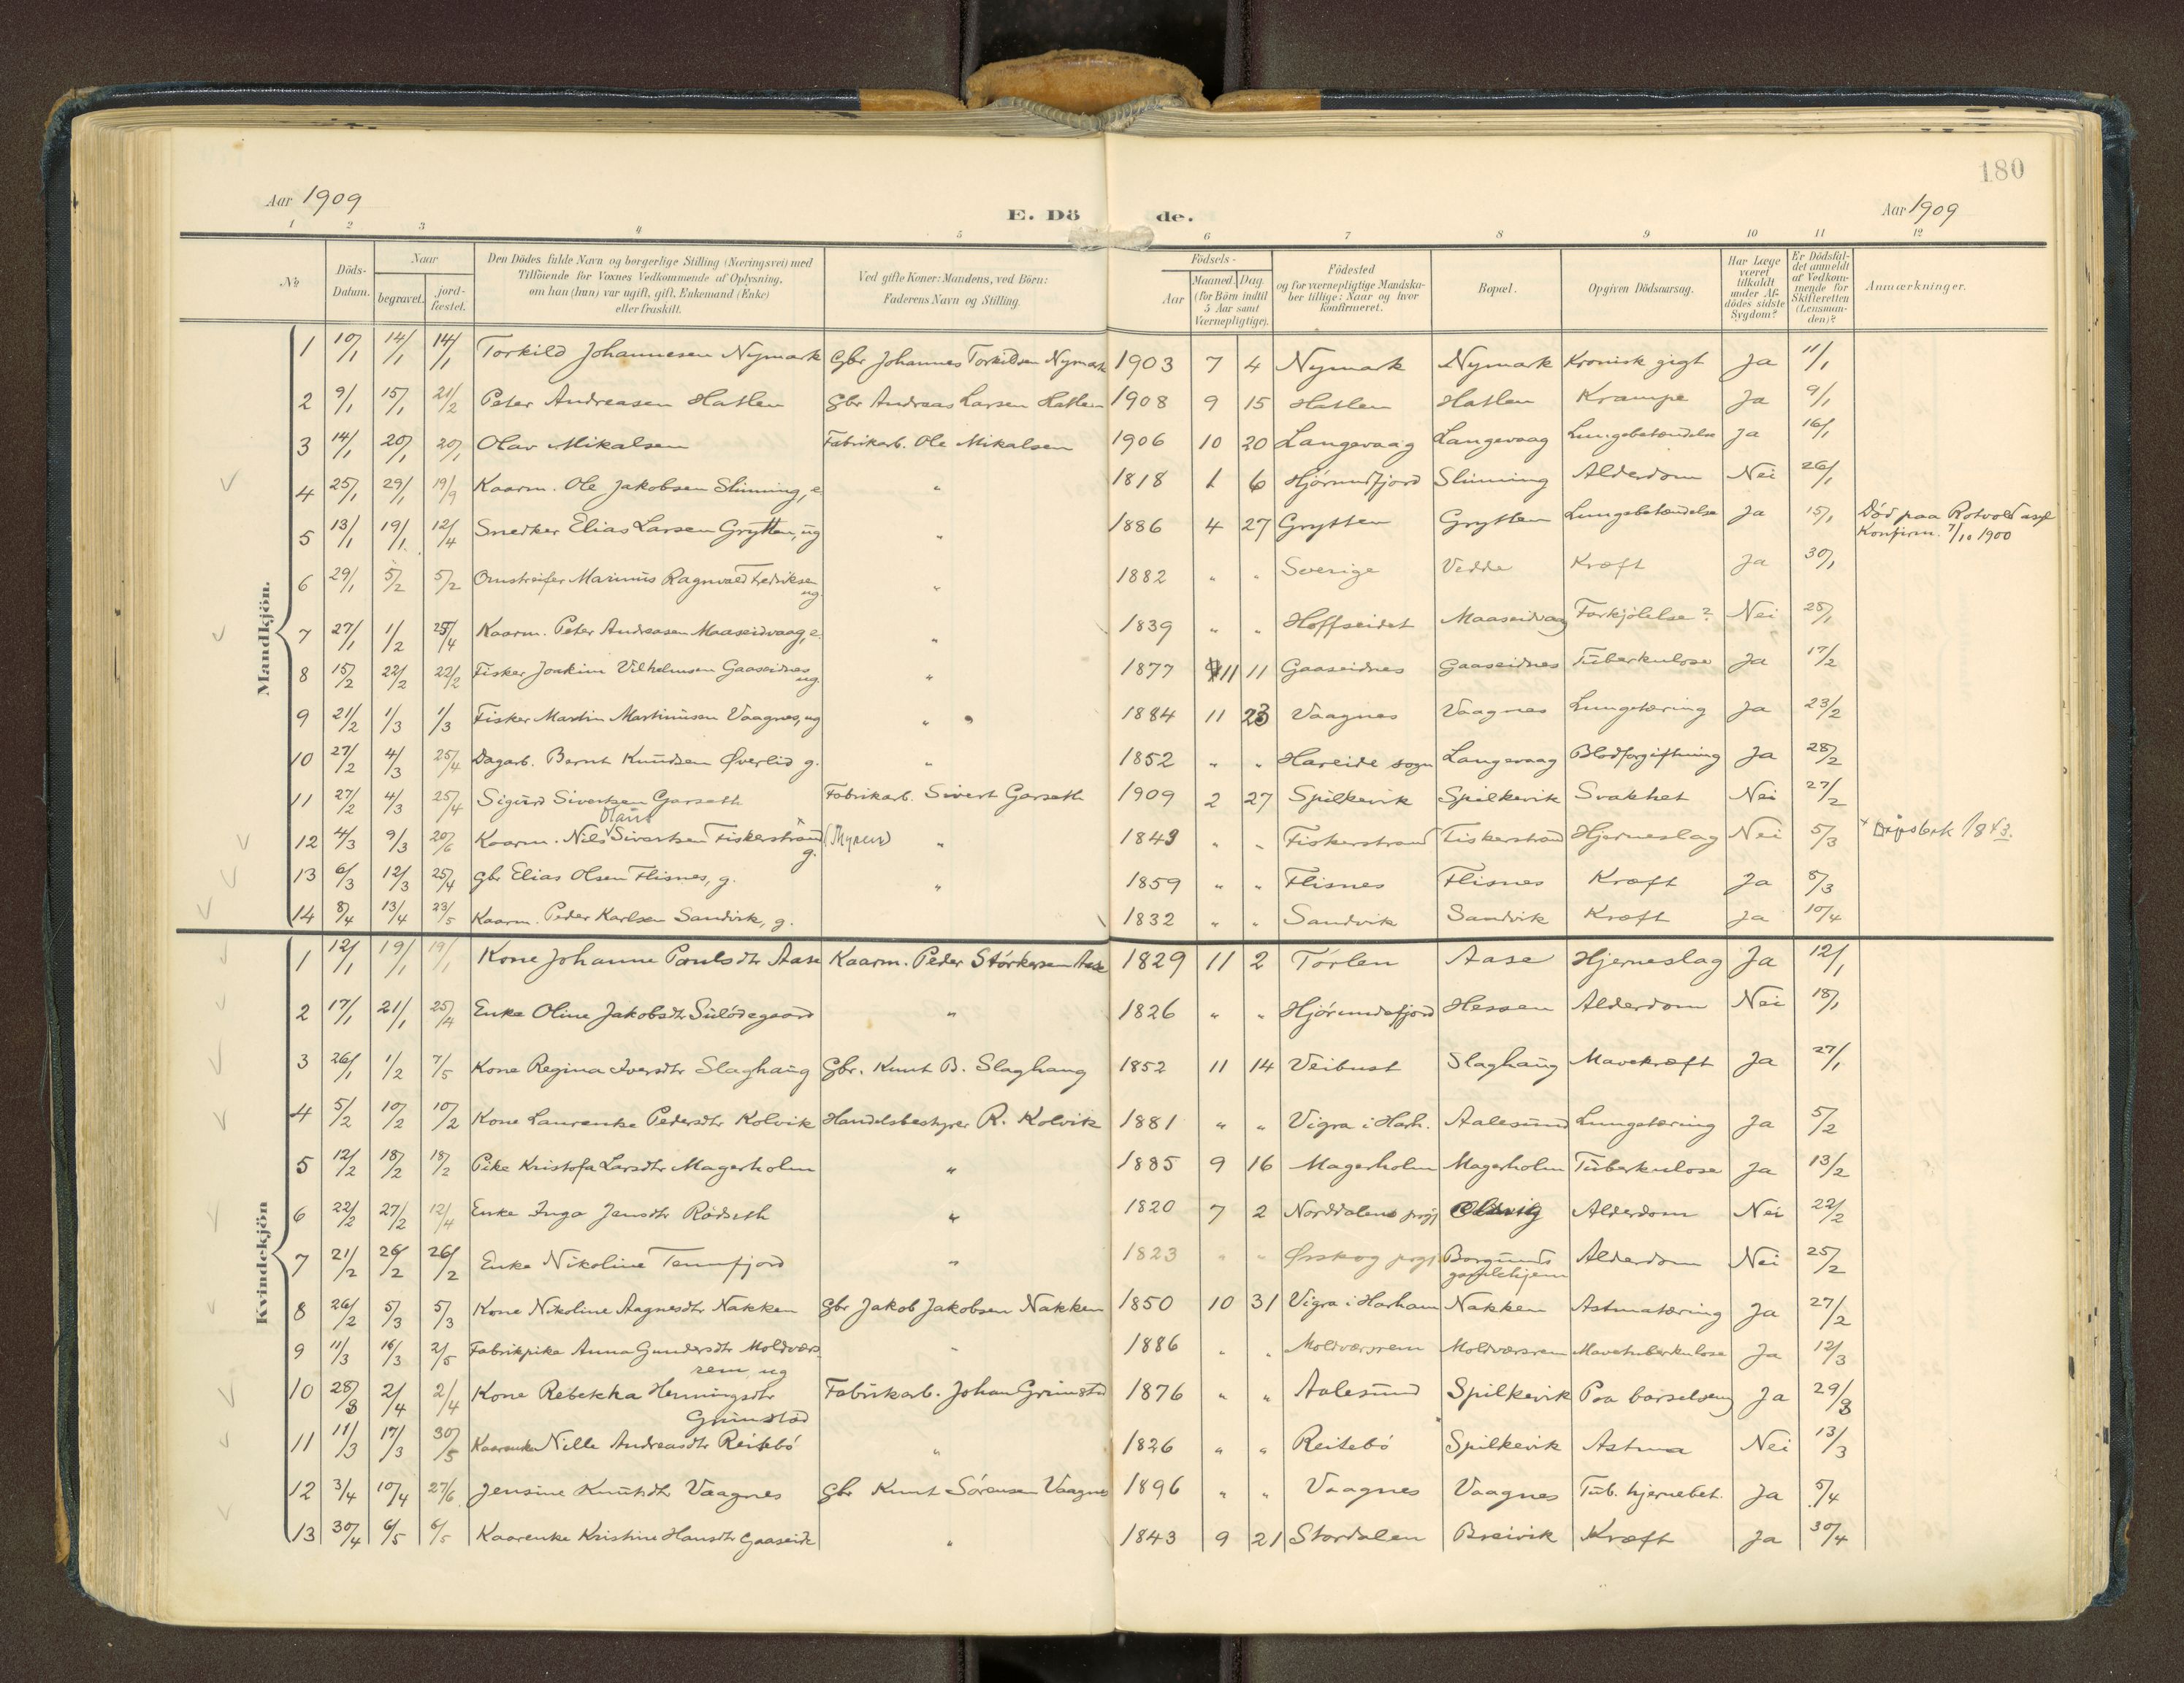 180
Aar 1909
E. Dö de.
Aar 1909
1 2 3 4 5 6 7 8 9 10 11 12
No
Döds-
Datum.
Naar
begravet.
jord-
fæstet.
Den Dödes fulde Navn og borgerlige Stilling (Næringsvei) med
Tilföiende for Voxnes Vedkommende af Oplysning,
om han (hun) var ugift, gift, Enkemand (Enke)
eller fraskilt.
Ved gifte Koner: Mandens, ved Börn:
Faderens Navn og Stilling.
Födsels-
Aar
Maaned. Dag.
(for Börn indtil
5 Aar samt
Værnepligtige).
Födested
og for værnepligtige Mandska-
ber tillige: Naar og hvor
konfirmeret.
Bopæl.
Opgiven Dödsaarsag.
Har Læge
været
tilkaldt
under Af-
dödes sidste
Sygdom?
Er Dödsfal-
det anmeldt
af Vedkom-
mende for
Skifteretten
(Lensman-
den)?
Anmærkninger.
Mandkjön.
1 10/1 14/1 14/1 Torkild Johannesen Nymark Gbr Johannes Torkildsen Nymark 1903 7 4 Nymark Nymark Kronisk gigt Ja 11/1
2 9/1 15/1 21/2 Peter Andreasen Hatlen Gbr Andreas Larsen Hatlen 1908 9 15 Hatlen Hatlen Krampe Ja 9/1
3 14/1 20/1 20/1 Olav Mikalsen Fabrikarb. Ole Mikalsen 1906 10 20 Langevaag Langevaag Lungebetændelse Ja 16/1
4 25/1 29/1 19/9 Kaarm. Ole Jakobsen Slinning, e. " 1818 1 6 Hjörundfjord Slinning Alderdom Nei 26/1
5 13/1 19/1 12/4 Snedker Elias Larsen Grytten, ug " 1886 4 27 Grytten Grytten Lungebetændelse Ja 15/1 Död paa Rotvold asyl
Konfirm. 7/10 1900
6 29/1 5/2 5/2 Omstreifer Marinus Ragnvald Fredriksen
ug. " 1882 " " Sverige Vedde Kræft Ja 30/1
7 27/1 1/2 25/4 Kaarm. Peter Andreasen Maaseidvaag, e. " 1839 " " Hoffseidet Maaseidvaag Forkjölelse? Nei 28/1
8 15/2 22/2 22/2 Fisker Joakim Vilhelmsen Gaaseidnes
ug. " 1877 11 11 Gaaseidnes Gaaseidnes Tuberkulose Ja 17/2
9 21/2 1/3 1/3 Fisker Martin Martinusen Vaagnes, ug " 1884 11 23 Vaagnes Vaagnes Lungetæring Ja 23/2
10 27/2 4/3 25/4 Dagarb. Bernt Knudsen Øverlid g. " 1852 " " Hareide sogn Langevaag Blodforgiftning Ja 28/2
11 27/2 4/3 25/4 Sigurd Sivertsen Garseth Fabrikarb. Sivert Garseth 1909 2 27 Spilkevik Spilkevik Svakhet Nei 27/2
Olaus
12 4/3 9/3 20/6 Kaarm. Nils Sivertsen Fiskerstrand x
g. (Myren) " 1843 " " Fiskerstrand Fiskerstrand Hjerneslag Nei 5/3 x Dåpsbok 1843.
13 6/3 12/3 25/4 Gbr Elias Olsen Flisnes, g. " 1859 " " Flisnes Flisnes Kræft Ja 8/3
14 8/4 13/4 23/5 Kaarm. Peder Karlsen Sandvik, g. 1832 " " Sandvik Sandvik Kræft Ja 10/4
Kvindekjön
1 12/1 19/1 19/1 Kone Johanne Paulsdtr Aase Kaarm. Peder Störkersen Aase 1829 11 2 Torlen Aase Hjerneslag Ja 12/1
2 17/1 21/1 25/4 Enke Oline Jakobsdtr Sulödegaard " 1826 " " Hjörundfjord Hessen Alderdom Nei 18/1
3 26/1 1/2 7/5 Kone Regina Iversdtr Slaghaug Gbr. Knut B. Slaghaug 1852 11 14 Veibust Slaghaug Mavekræft Ja 27/1
4 5/2 10/2 10/2 Kone Laurenke Pedersdtr Kolvik Handelsbestyrer R. Kolvik 1881 " " Vigra i Harh. Aalesund Lungetæring Ja 5/2
5 12/2 18/2 18/2 Pike Kristofa Larsdtr Magerholm " 1885 9 16 Magerholm Magerholm Tuberkulose Ja 13/2
6 22/2 27/2 12/4 Enke Inga Jensdtr Rödseth " 1820 7 2 Norddalens prgj Alderdom Nei 22/2
7 21/2 26/2 26/2 Enke Nikoline Tennfjord " 1823 " " Ørskog prgj Borgunds
gamlehjem Alderdom Nei 25/2
8 26/2 5/3 5/3 Kone Nikoline Aagnesdtr Nakken Gbr Jakob Jakobsen Nakken 1850 10 31 Vigra i Harham Nakken Astmatæring Ja 27/2
9 11/3 16/3 2/5 Fabrikpike Anna Gundersdtr Moldværs-
rem, ug " 1886 " " Moldværsrem Moldværsrem Mavetuberkulose Ja 12/3
10 28/3 2/4 2/4 Kone Rebekka Henningsdtr
Grimstad Fabrikarb. Johan Grimstad 1876 " " Aalesund Spilkevik Paa barselseng Ja 29/3
11 11/3 17/3 30/5 Kaarenke Nille Andreasdtr Reitebö " 1826 " " Reitebö Spilkevik Astma Nei 13/3
12 3/4 10/4 27/6 Jensine Knutsdtr Vaagnes Gbr Knut Sörensen Vaagnes 1896 " " Vaagnes Vaagnes Tub. hjernebet. Ja 5/4
13 30/4 6/5 6/5 Kaarenke Kristine Hansdtr Gaaseide " 1843 9 21 Stordalen Breivik Kræft Ja 30/4